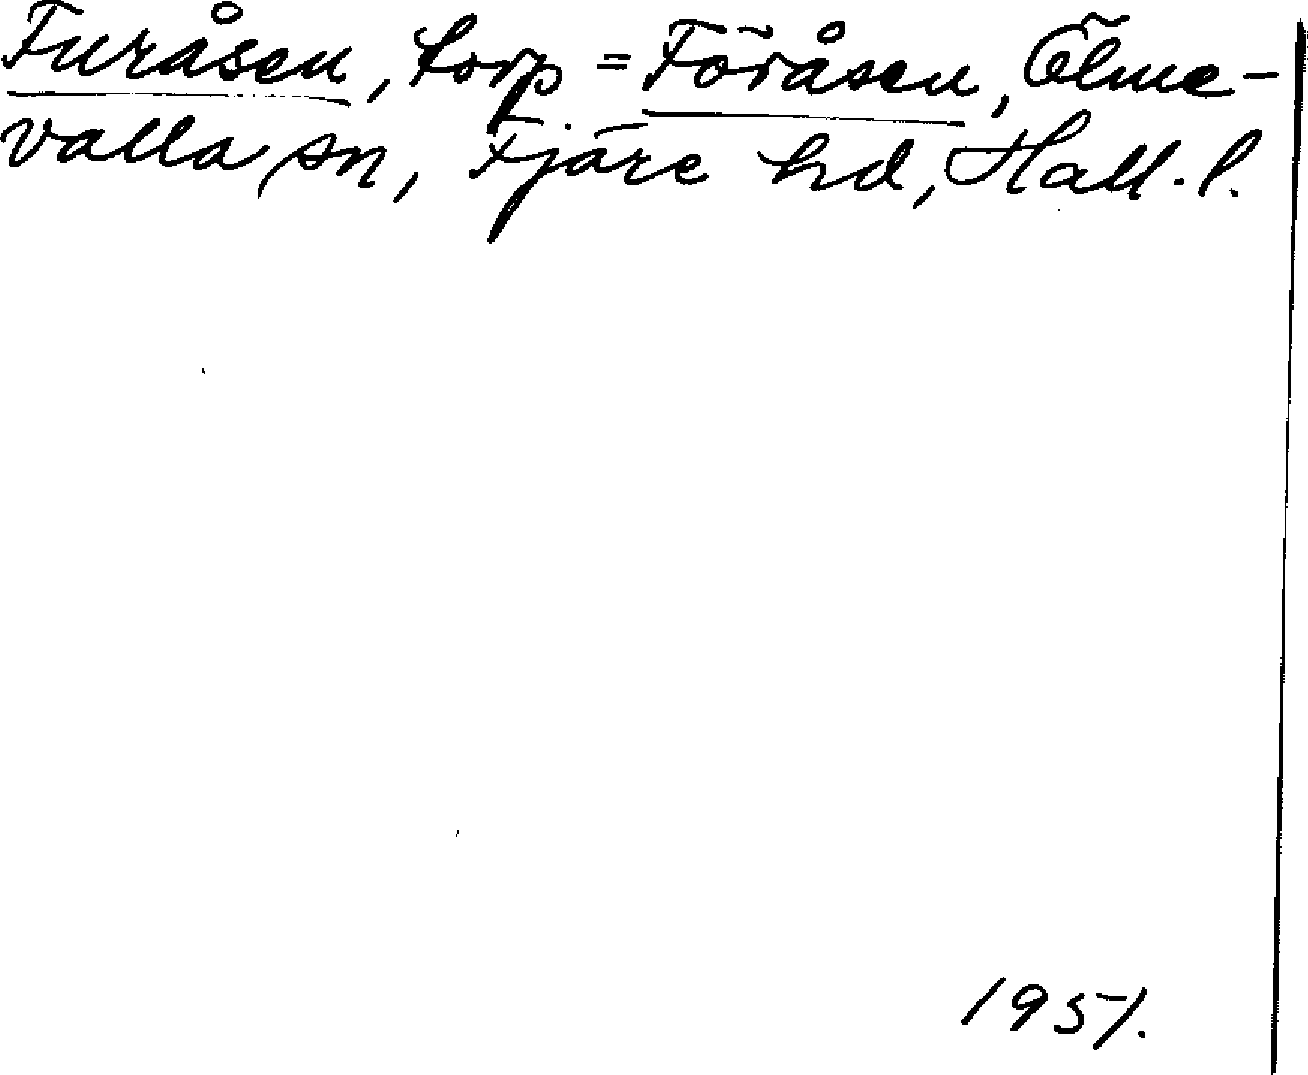 Furåsen, torp = Föråsen, Ölme-
valla sn, Fjäre hd, Hall. l.
1951.